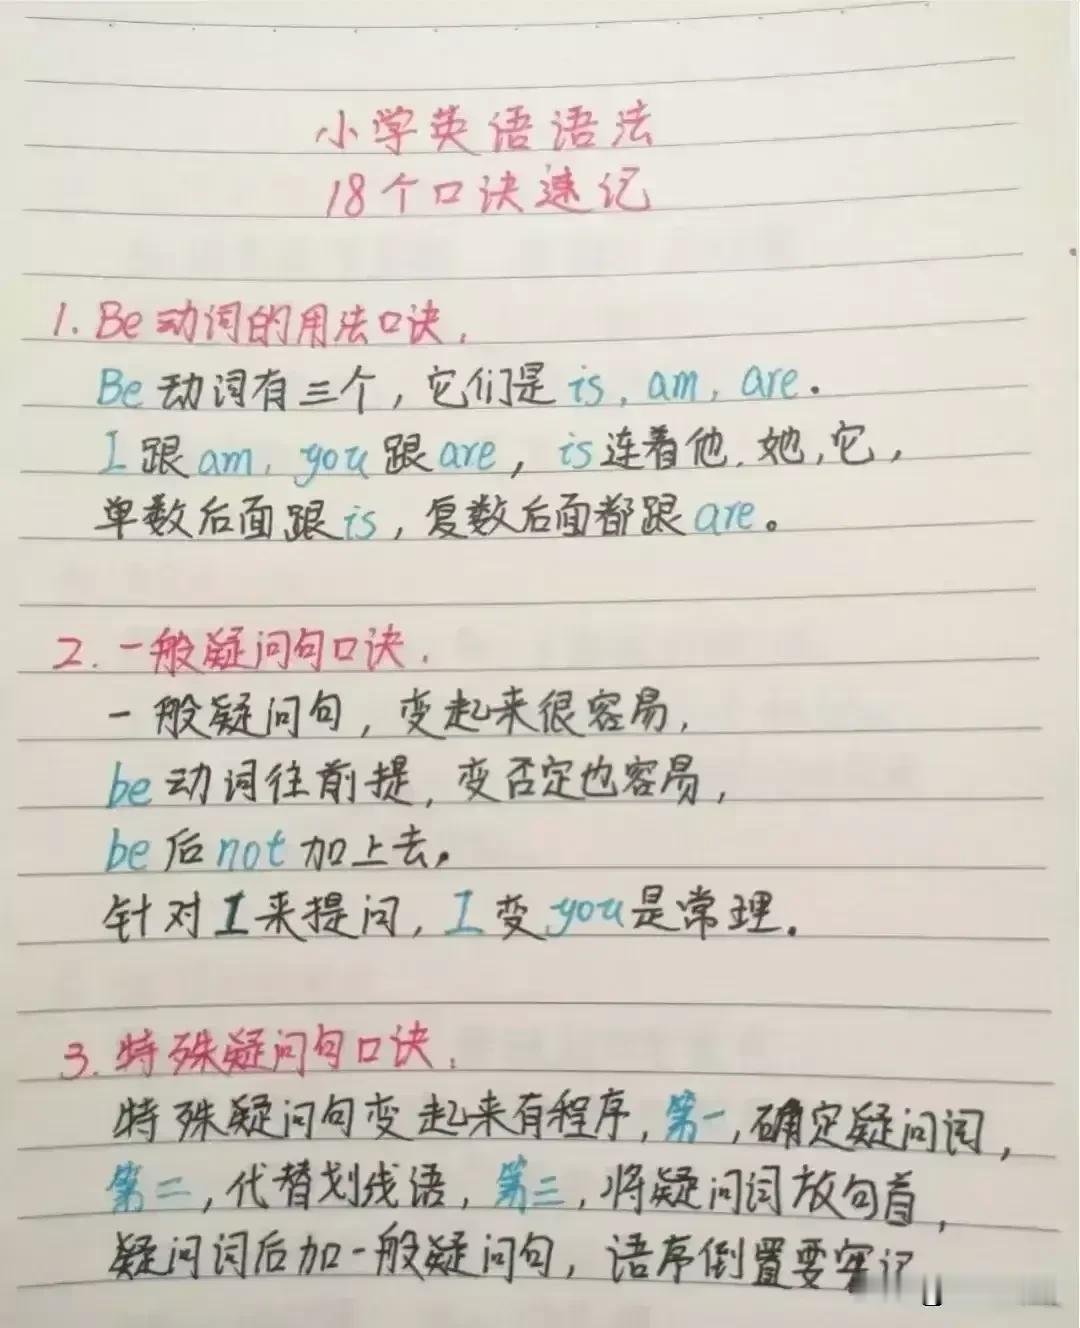 小学英语语法
18个口诀速记
1. Be动词的用法口诀.
Be动词有三个，它们是is, am, are.
I跟am, you跟are, is连着他.她,它,
单数后面跟is,复数后面都跟are。
2. 一般疑问句口诀.
一般疑问句,变起来很容易,
be动词往前提,变否定也容易,
be后not加上去,
针对I来提问,I变you是常理.
3. 特殊疑问句口诀.
特殊疑问句变起来有程序,第一,确定疑问词,
第二,代替划线语,第三,将疑问词放句首,
疑问词后加一般疑问句,语序倒置要牢记